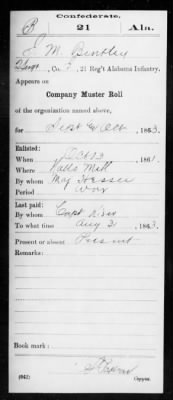 Confederate.
B 21 Ala.
J M Bentley
Co. 21 Reg't Alabama Infantry.
Appears on
Company Muster Roll
of the organization named above,
for Sept & Oct, 1863.
Enlisted:
When Oct 13, 1861.
Where Halls Mill
By whom Maj Hesser
Period War
Last paid:
By whom Capt
To what time Aug 31, 1863.
Present or absent Present
Remarks:
Book mark:
(642) Copyist.